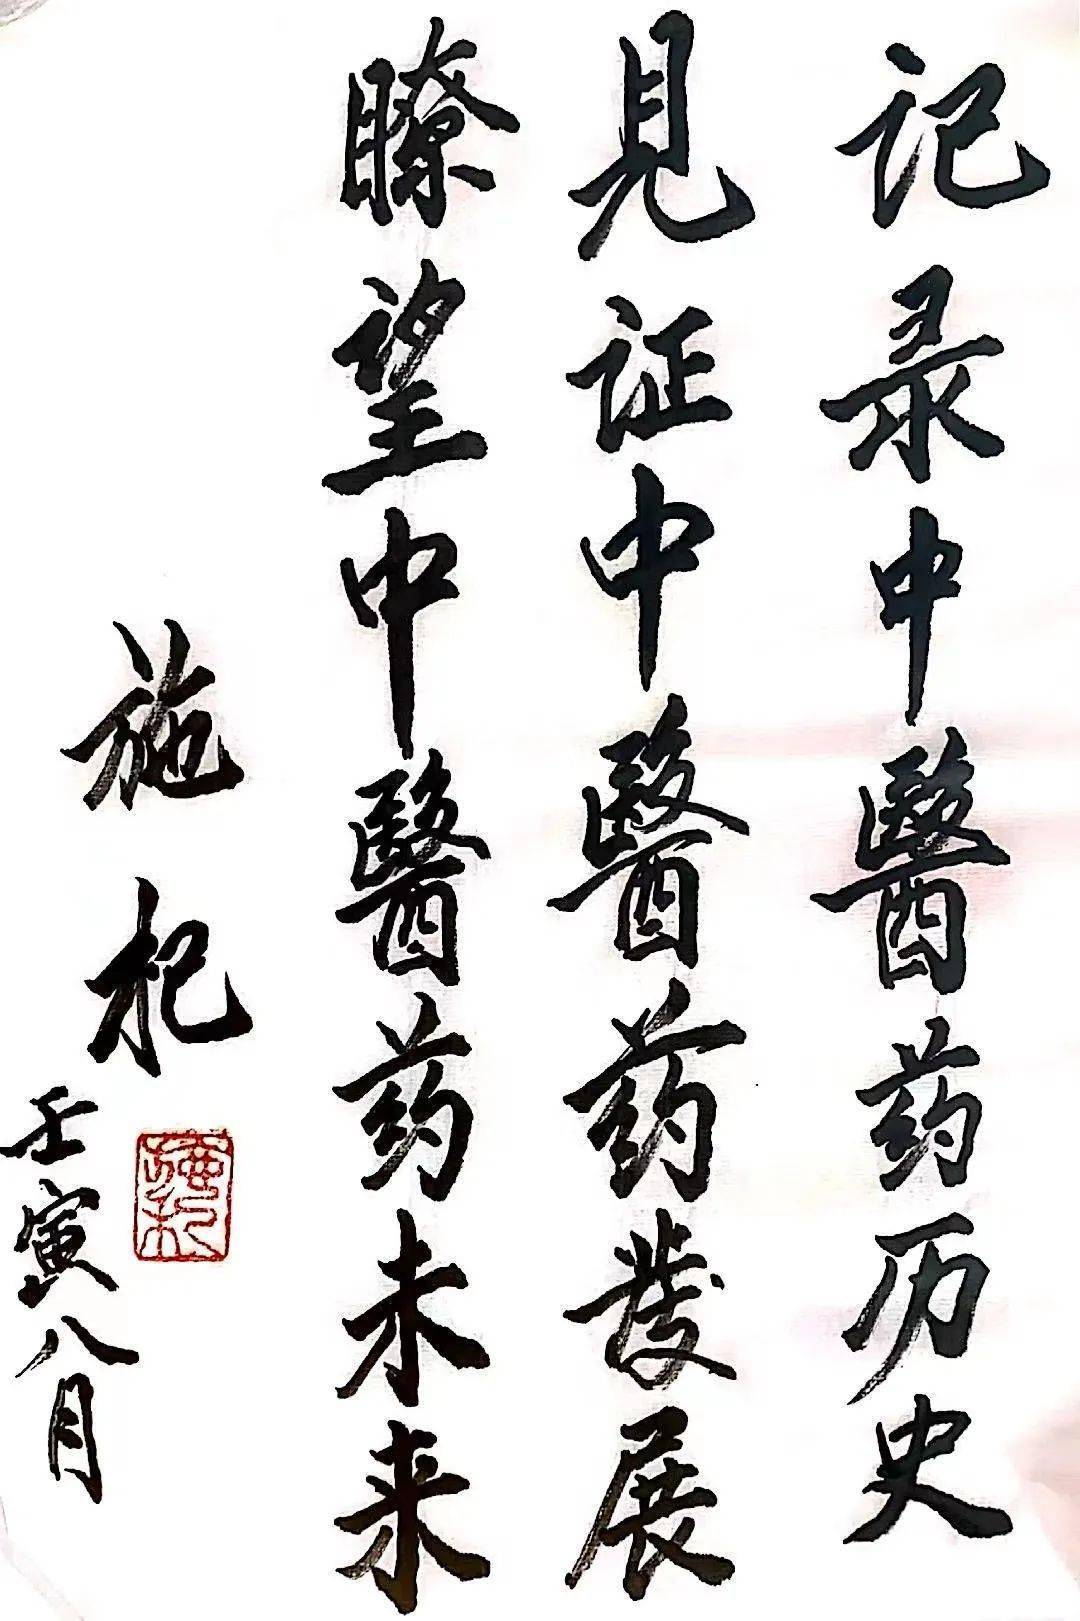 记录中醫药历史
见证中醫药發展
瞭望中醫药未来
施杞
壬寅八月
施杞